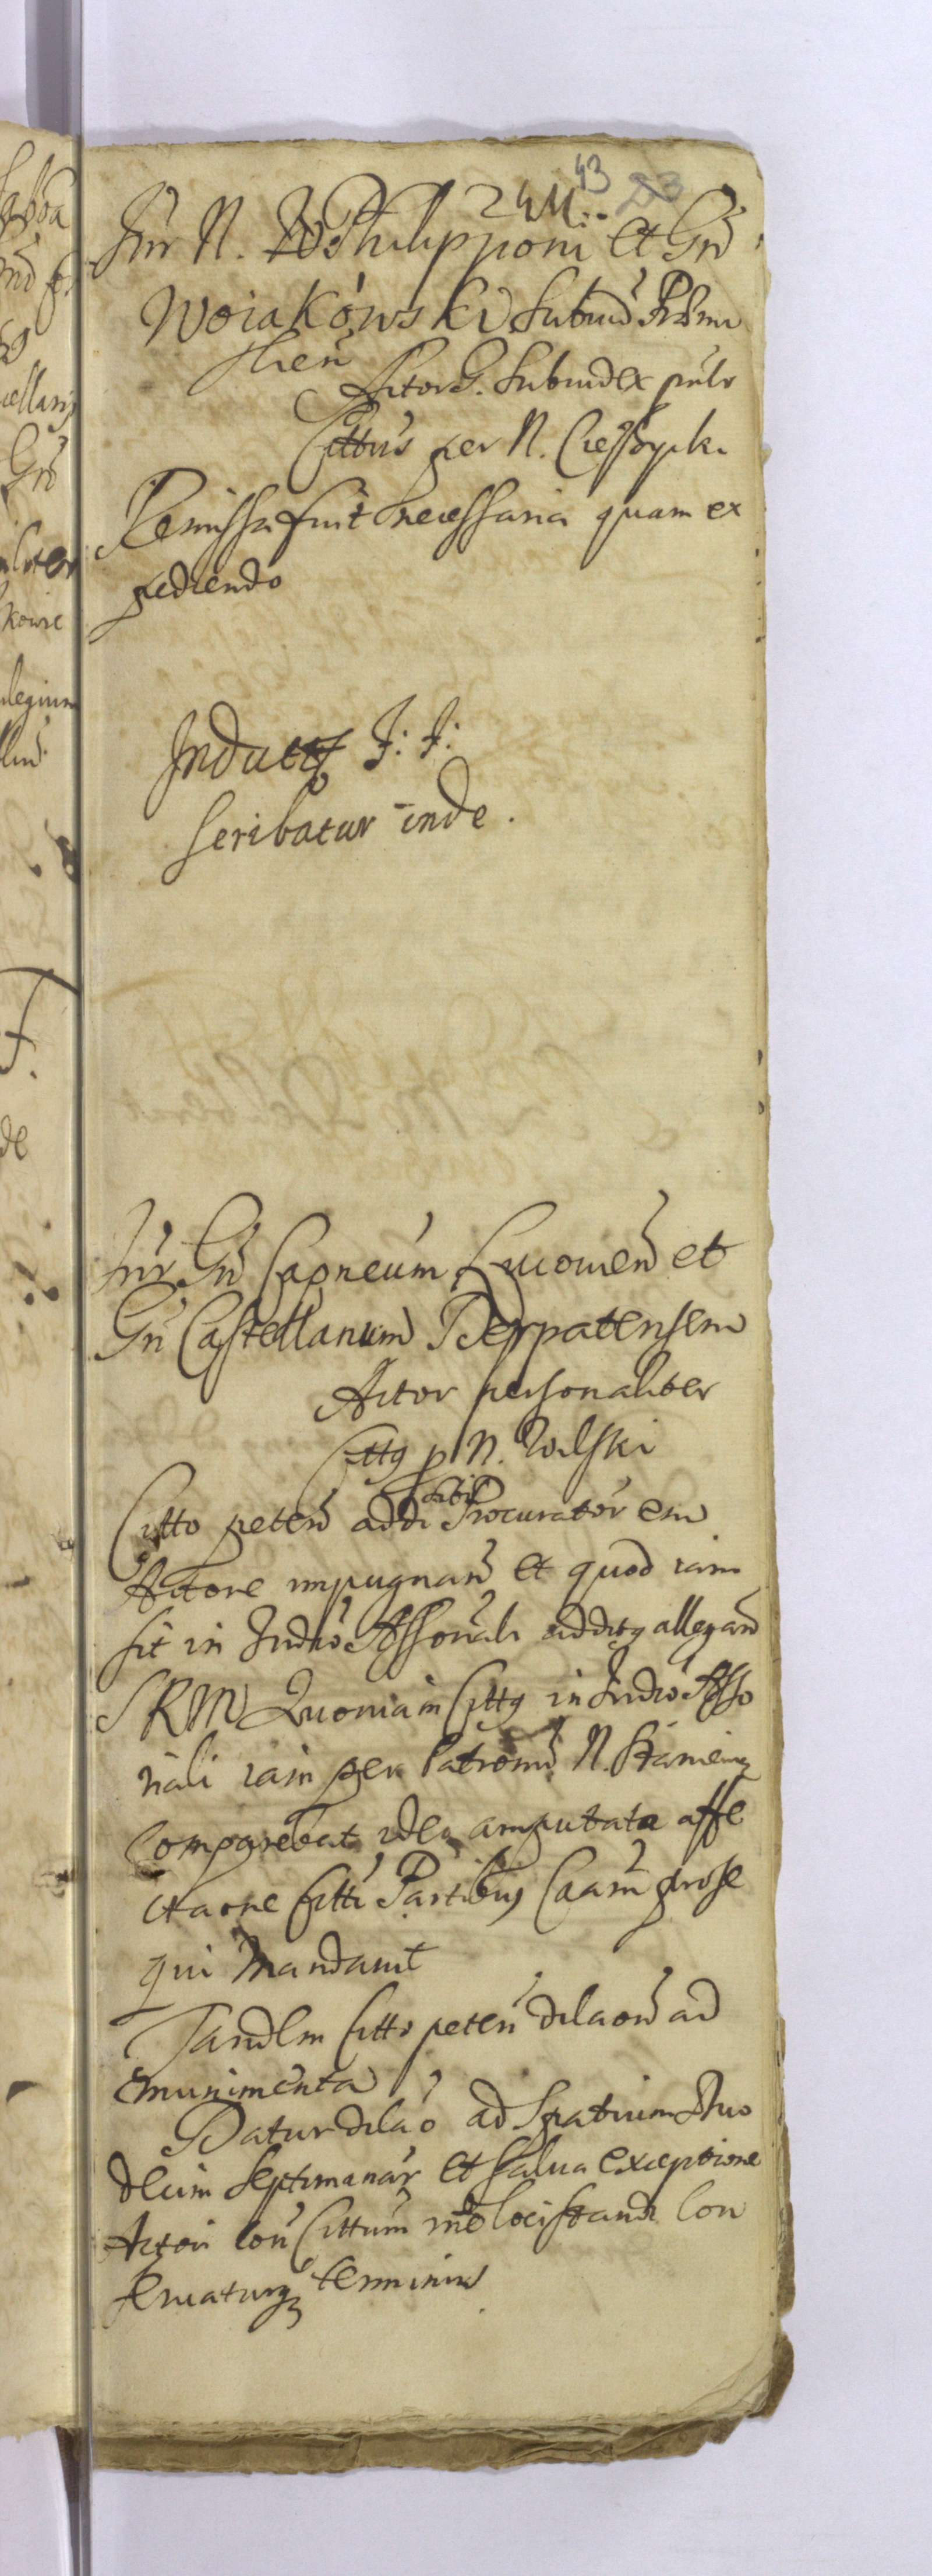 43
24 M.
Inr N. Philipponi et Gnd
Woiakowski Subiud Prem
slien
Actor G. Subiudex pnlr
Cittus per N. Cieszycki
Remissa fuit necessaria quam ex
pediendo
Inductq I: I:
scribatur inde.
Inr Gnd Capneum Lucouien et
Gn Castellanum Derpatensem
Actor personaliter
Cittq p N. Wilski
Citto peten addi sibi Procuratorem
Actore impugnan et quod iam
sit in Iudio Assonali additq allegan
SRM Quoniam Cittq in Iudio Asso
nali iam per Patronu N.
comparebat ideo amputata affe
ctaone Citti Partibus Caam prose
qui Mandauit
Tandem Citto peten dilaon ad
munimenta
Datur dilao ad Spatium Duo
decim Septimanar et salua exceptione
Actori con Cittum loci standi con
seruaturq terminus